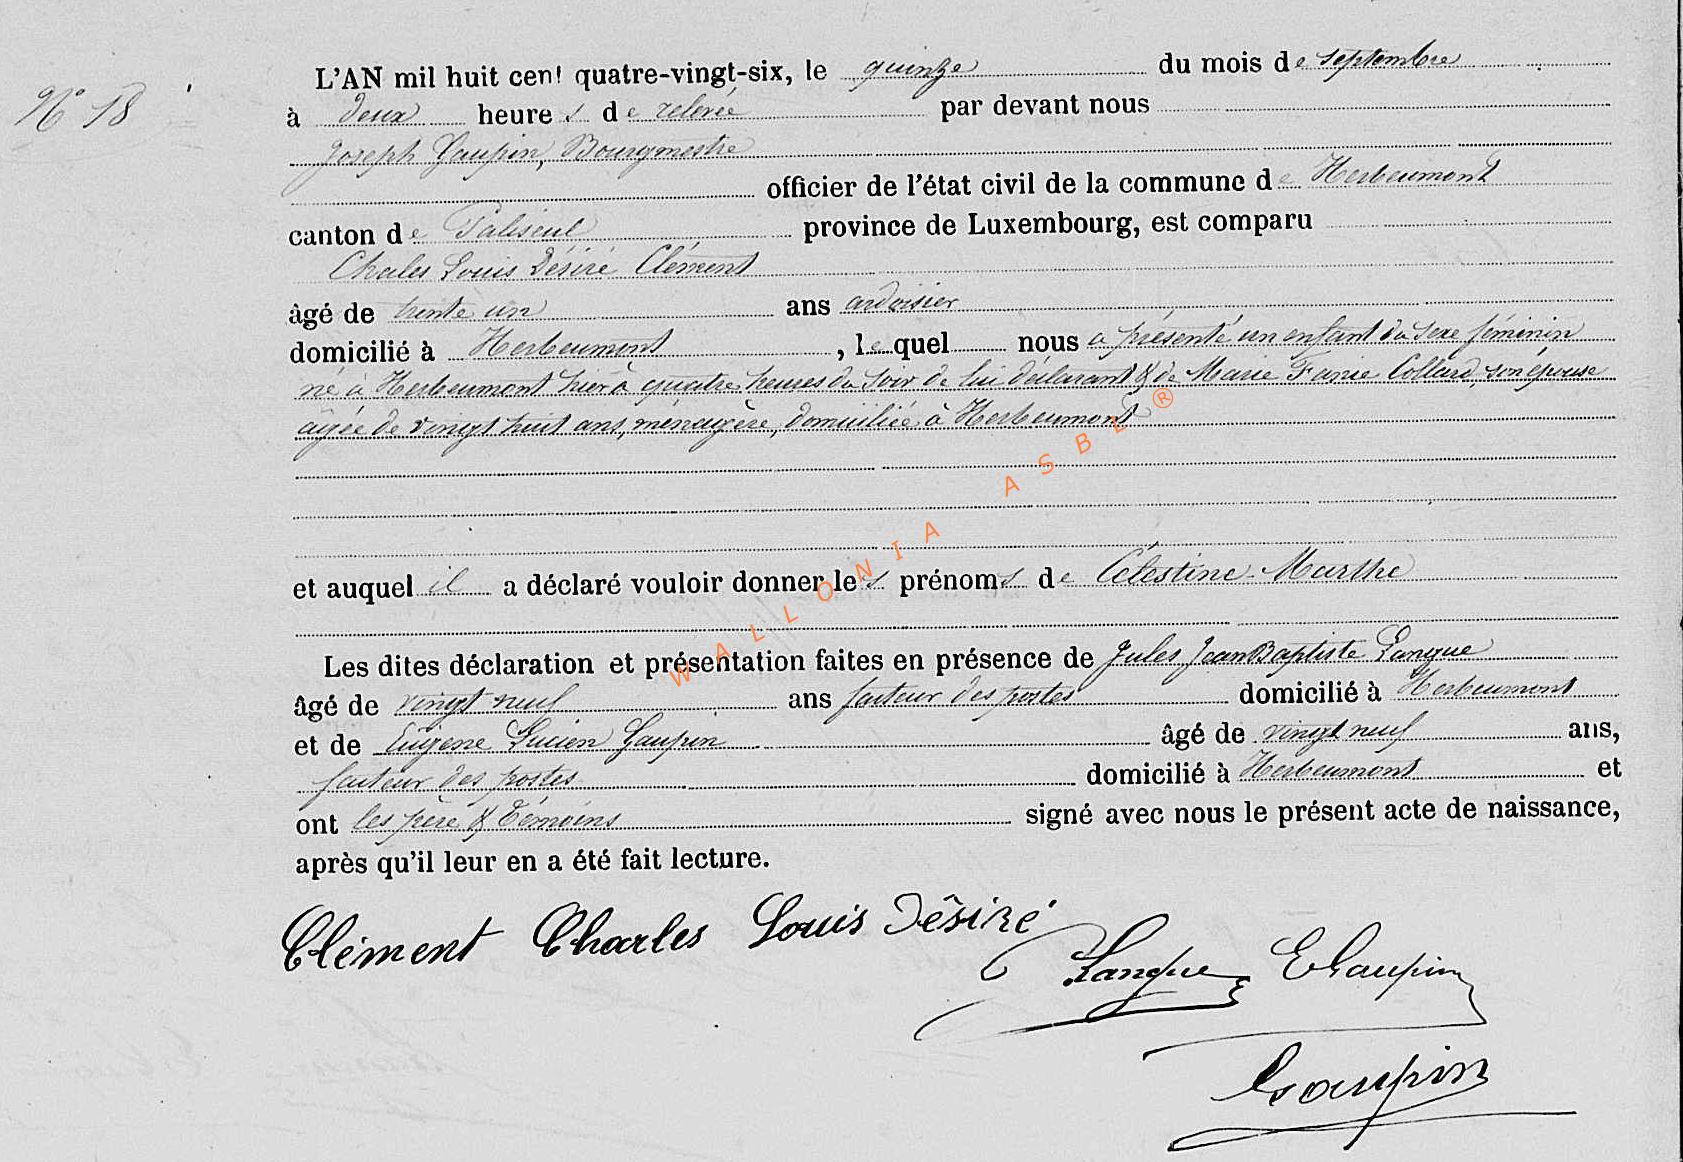 N° 18
L'AN mil huit cent quatre-vingt-six, le quinze du mois de septembre
à deux heures de relevée par devant nous
Joseph Gaupin, Bourgmestre
officier de l'état civil de la commune de Herbeumont
canton de Paliseul province de Luxembourg, est comparu
Chales Louis Désiré Clément
âgé de trente un ans ardoisier
domicilié à Herbeumont, lequel nous a présenté un enfant du sexe féminin
né à Herbeumont hier à quatre heures du soir de lui déclarant & de Marie Fanie Collard, son épouse
âgée de vingt huit ans, ménagère, domiciliée à Herbeumont
et auquel il a déclaré vouloir donner les prénoms de Célestine-Marthe
Les dites déclaration et présentation faites en présence de Jules Jean Baptiste Langue
âgé de vingt neuf ans facteur des postes domicilié à Herbeumont
et de Eugène Lucien Gaupin âgé de vingt neuf ans,
facteur des postes domicilié à Herbeumont et
ont les père & témoins signé avec nous le présent acte de naissance,
après qu'il leur en a été fait lecture.
Clément Charles Louis Désiré
Langue EGaupin
Gaupin
WALLONIA ASBL ®